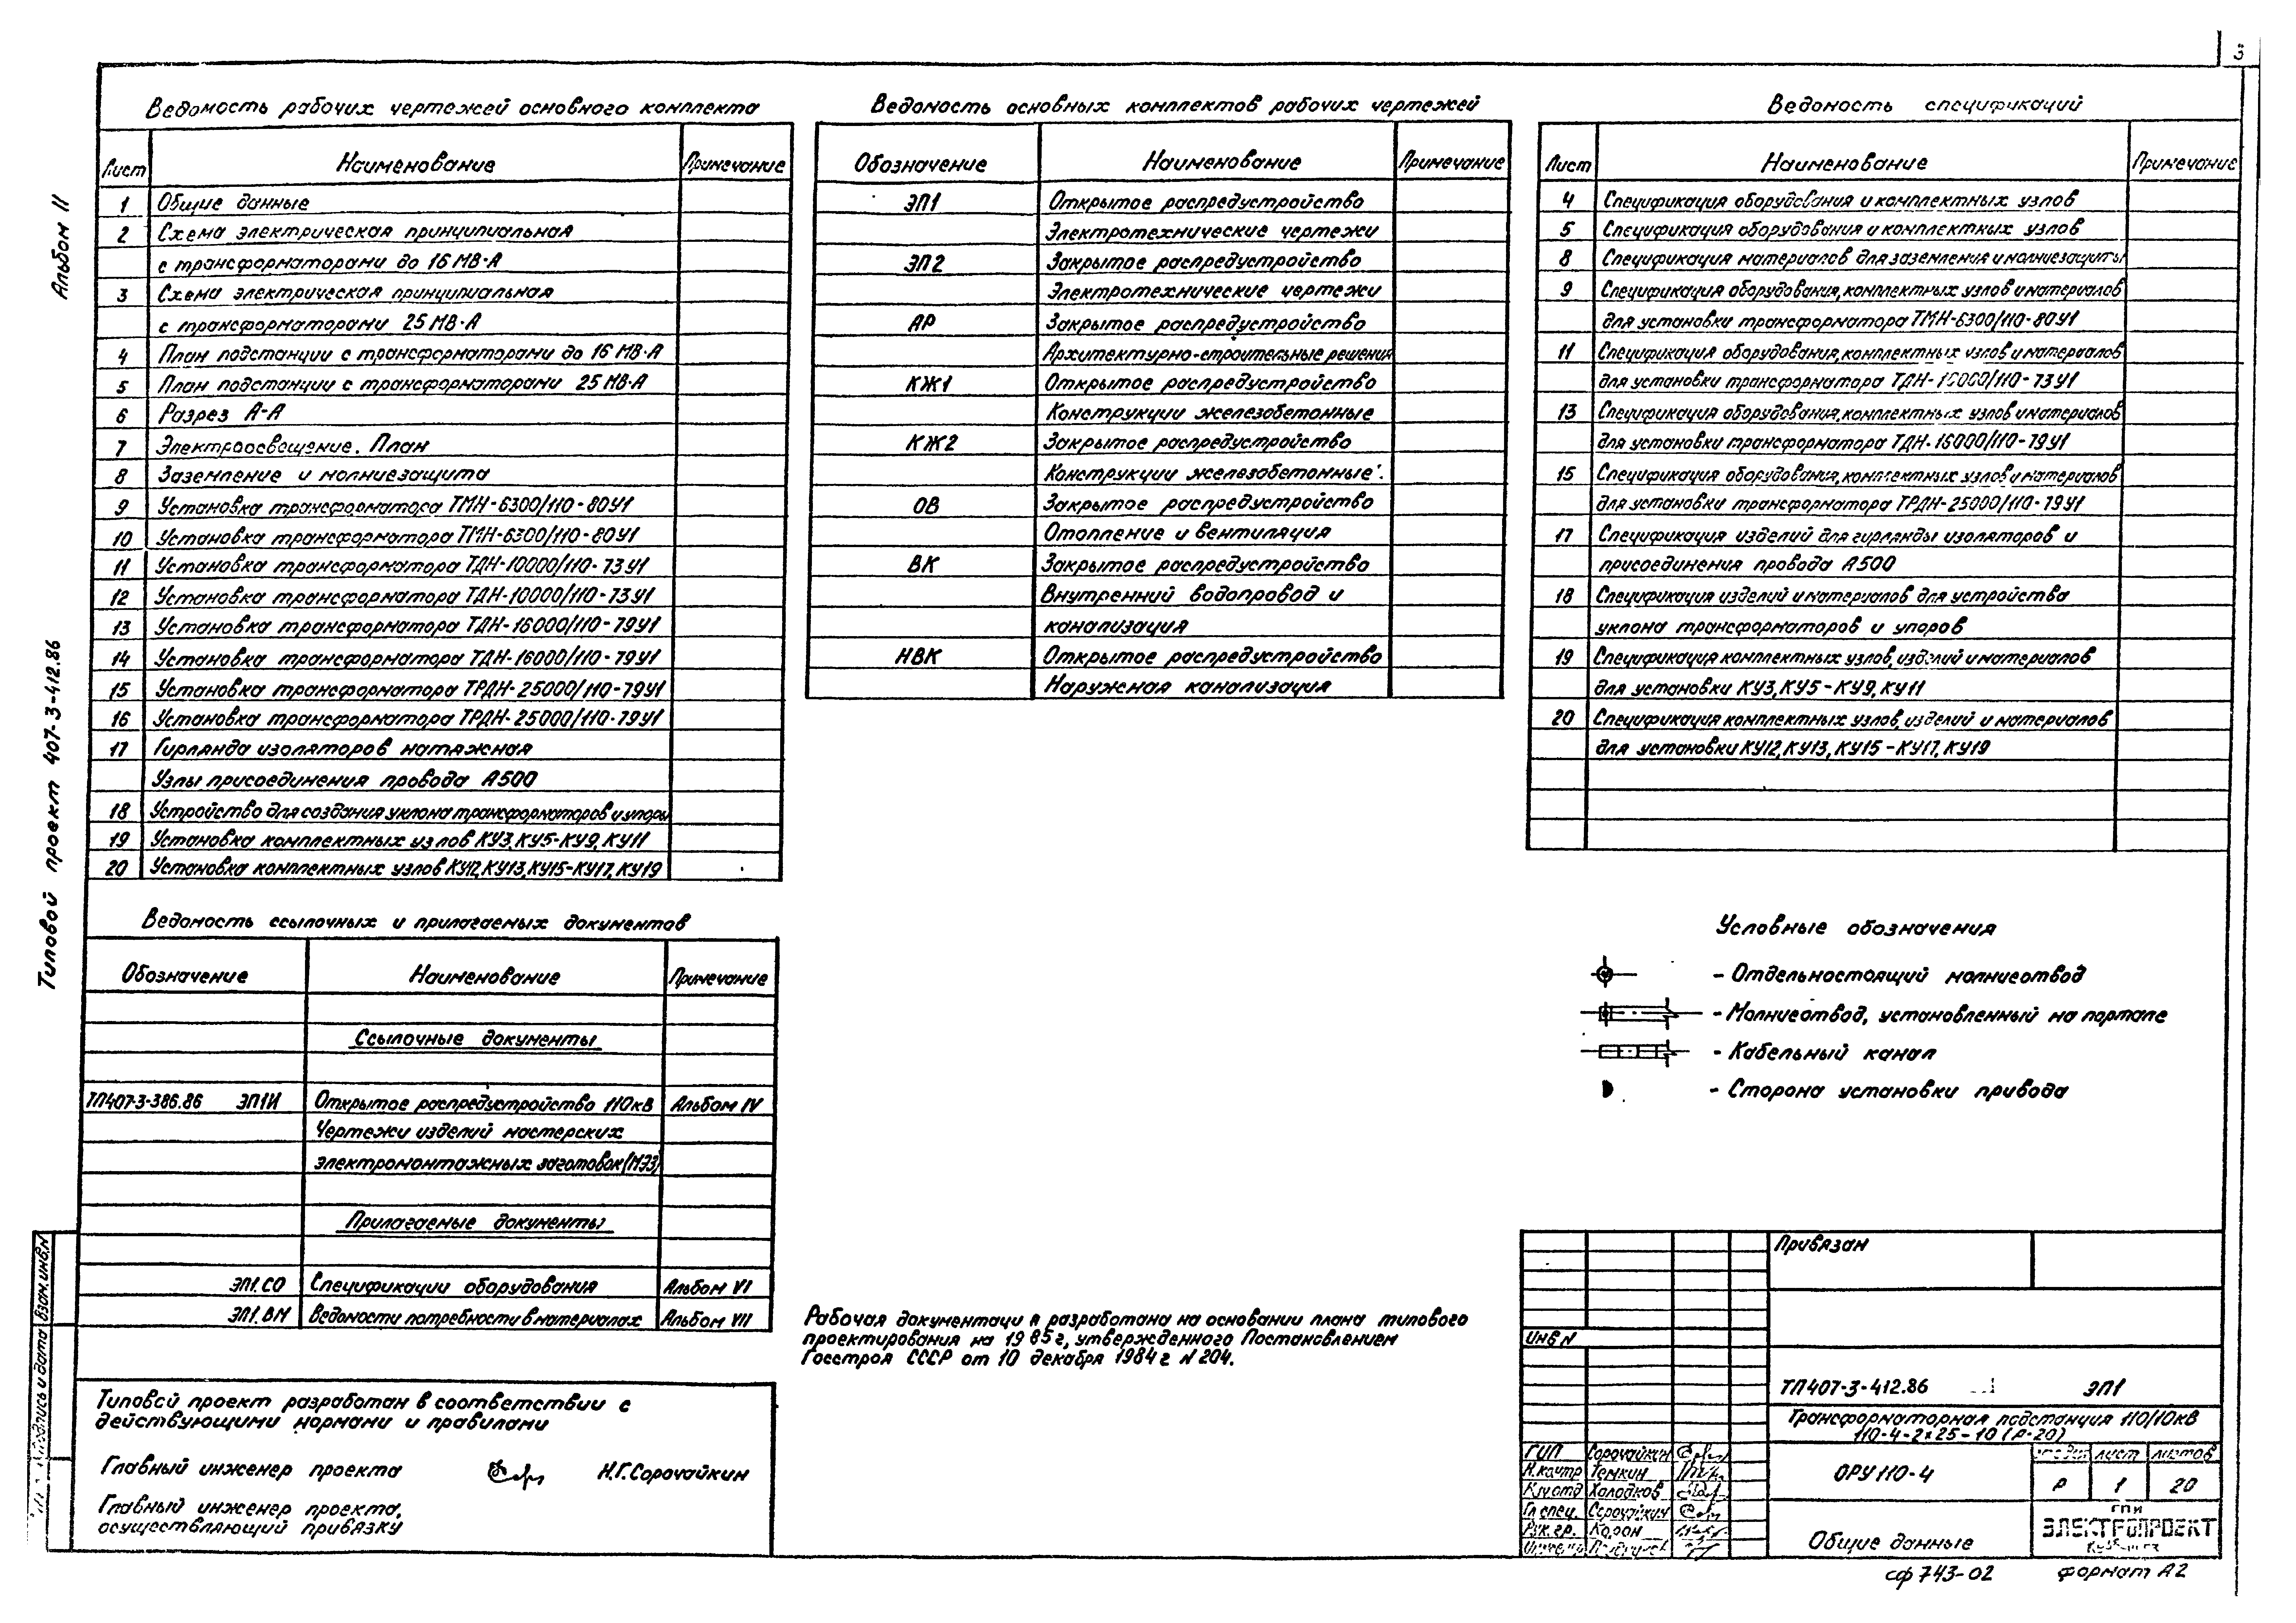 3
Альбом II
Типовой проект 407-3-412.86
Ведомость рабочих чертежей основного комплекта
Лист Наименование Примечание
1 Общие данные
2 Схема электрическая принципиальная
с трансформаторами до 16 МВ·А
3 Схема электрическая принципиальная
с трансформаторами 25 МВ·А
4 План подстанции с трансформаторами до 16 МВ·А
5 План подстанции с трансформаторами 25 МВ·А
6 Разрез А-А
7 Электроосвещение. План
8 Заземление и молниезащита
9 Установка трансформатора ТМН-6300/110-80У1
10 Установка трансформатора ТМН-6300/110-80У1
11 Установка трансформатора ТДН-10000/110-73У1
12 Установка трансформатора ТДН-10000/110-73У1
13 Установка трансформатора ТДН-16000/110-79У1
14 Установка трансформатора ТДН-16000/110-79У1
15 Установка трансформатора ТРДН-25000/110-79У1
16 Установка трансформатора ТРДН-25000/110-79У1
17 Гирлянда изоляторов натяжная
Узлы присоединения провода А500
18 Устройство для создания уклона трансформаторов и упоры
19 Установка комплектных узлов КУ3, КУ5-КУ9, КУ11
20 Установка комплектных узлов КУ12, КУ13, КУ15-КУ17, КУ19
Ведомость ссылочных и прилагаемых документов
Обозначение Наименование Примечание
Ссылочные документы
ТП407-3-386.86 ЭП1И Открытое распредустройство 110кВ Альбом IV
Чертежи изделий мастерских
электромонтажных заготовок (МЭЗ)
Прилагаемые документы
ЭП1.СО Спецификации оборудования Альбом VI
ЭП1.ВМ Ведомости потребности в материалах Альбом VII
Типовой проект разработан в соответствии с
действующими нормами и правилами
Главный инженер проекта Н.Г.Сорочайкин
Главный инженер проекта,
осуществляющий привязку
Взам.инв.N
Подпись и дата
Ведомость основных комплектов рабочих чертежей
Обозначение Наименование Примечание
ЭП1 Открытое распредустройство
Электротехнические чертежи
ЭП2 Закрытое распредустройство
Электротехнические чертежи
АР Закрытое распредустройство
Архитектурно-строительные решения
КЖ1 Открытое распредустройство
Конструкции железобетонные
КЖ2 Закрытое распредустройство
Конструкции железобетонные
ОВ Закрытое распредустройство
Отопление и вентиляция
ВК Закрытое распредустройство
Внутренний водопровод и
канализация
НВК Открытое распредустройство
Наружная канализация
Рабочая документация разработана на основании плана типового
проектирования на 1985г, утвержденного Постановлением
Госстроя СССР от 10 декабря 1984г N 204.
Ведомость спецификаций
Лист Наименование Примечание
4 Спецификация оборудования и комплектных узлов
5 Спецификация оборудования и комплектных узлов
8 Спецификация материалов для заземления и молниезащиты
9 Спецификация оборудования, комплектных узлов и материалов
для установки трансформатора ТМН-6300/110-80У1
11 Спецификация оборудования, комплектных узлов и материалов
для установки трансформатора ТДН-10000/110-73У1
13 Спецификация оборудования, комплектных узлов и материалов
для установки трансформатора ТДН-16000/110-79У1
15 Спецификация оборудования, комплектных узлов и материалов
для установки трансформатора ТРДН-25000/110-79У1
17 Спецификация изделий для гирлянды изоляторов и
присоединения провода А500
18 Спецификация изделий и материалов для устройства
уклона трансформаторов и упоров
19 Спецификация комплектных узлов, изделий и материалов
для установки КУ3, КУ5-КУ9, КУ11
20 Спецификация комплектных узлов, изделий и материалов
для установки КУ12, КУ13, КУ15-КУ17, КУ19
Условные обозначения
- Отдельностоящий молниеотвод
- Молниеотвод, установленный на портале
- Кабельный канал
- Сторона установки привода
Привязан
ИНВ N
ТП407-3-412.86 ЭП1
Трансформаторная подстанция 110/10кВ
110-4-2х25-10 (Р-20)
ГИП Сорочайкин
Н.контр Темкин
Холодков
Гл.спец. Сорочайкин
Рук.гр. Карон
ОРУ 110-4
лист листов
Р 1 20
Общие данные
ГПИ
ЭЛЕКТРОПРОЕКТ
сф 743-02 формат А2